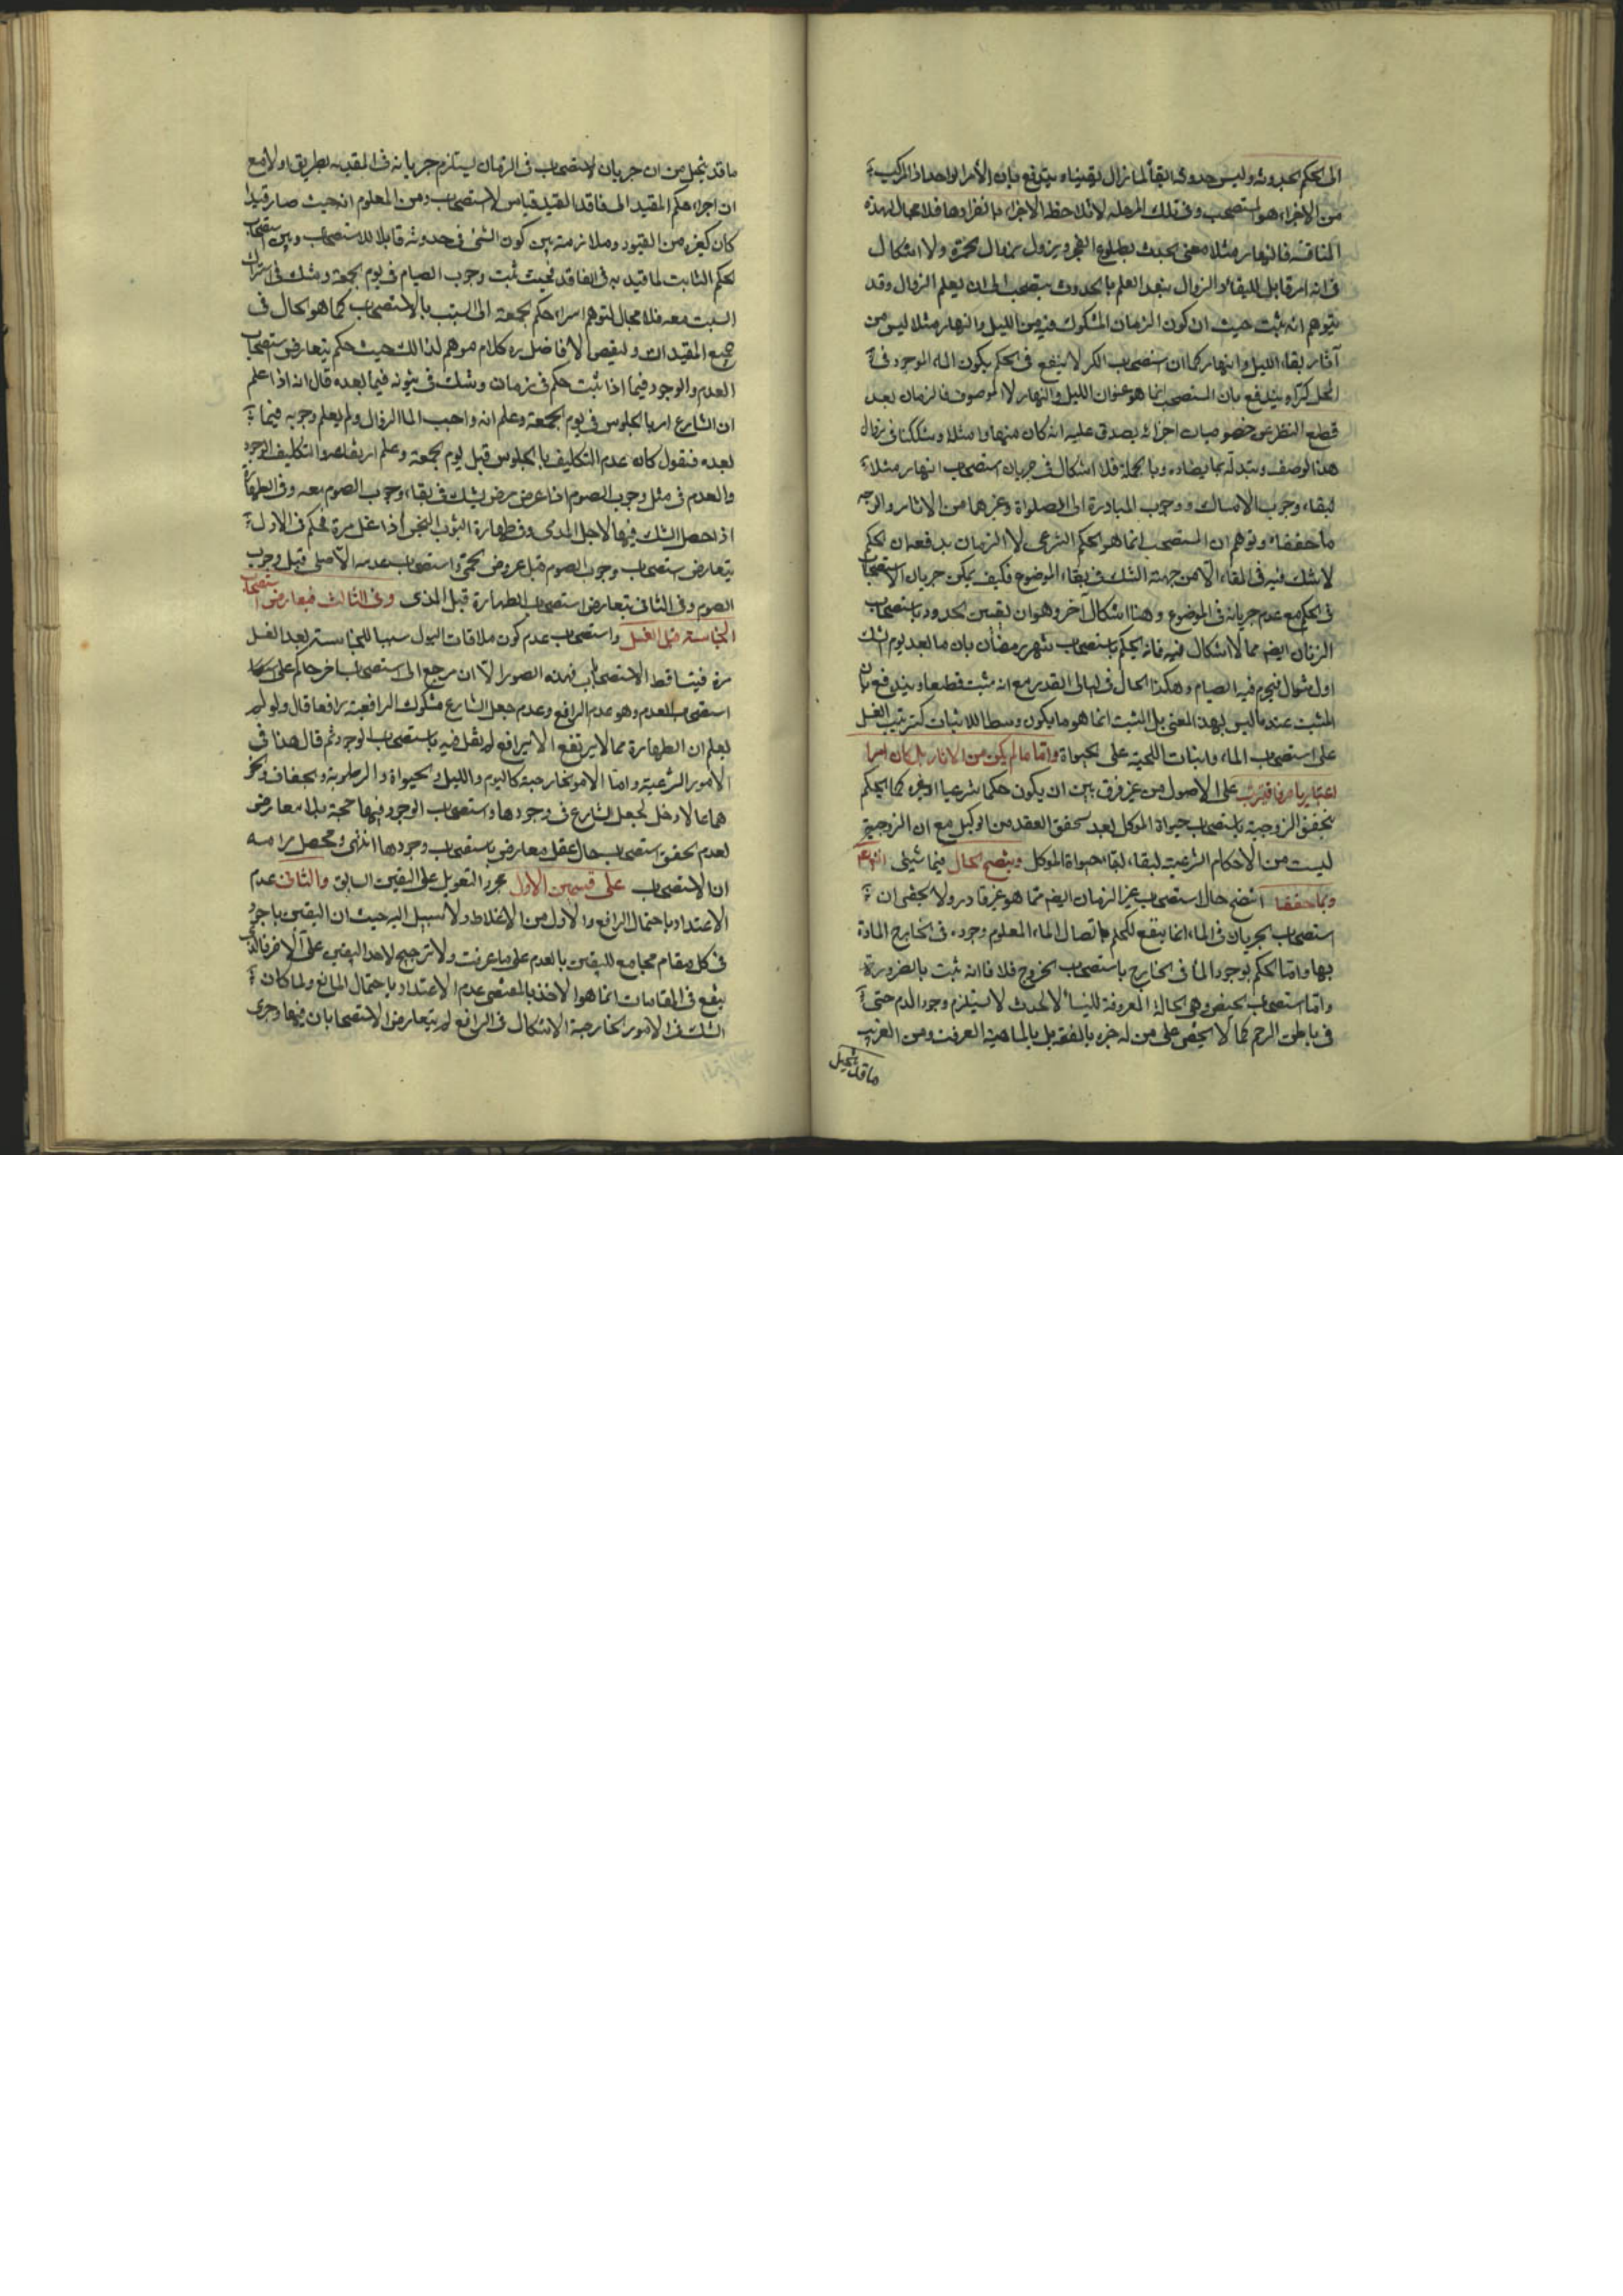 الى الحكم بحدوثه وليس حدوثه ابقاء لما زال يقيناه يندفع بان الأمر الواحد اذا تركب
من الاجزاء هو المستصحب وفى تلك المرحلة لا تلاحظ الاجزاء بانفرادها فلا مجال لهذه
المناقشة فالنهار مثلا معنى يحدث بطلوع الفجر ويزول بزوال الحمرة ولا اشكال
فى انه امر قابل للبقاء والزوال فبعد العلم بالحدوث يستصحب الى ان يعلم الزوال وقد
يتوهم انه مثبت حيث ان كون الزمان المشكوك فيه من الليل والنهار مثلا ليس من
آثار بقاء الليل والنهار كما ان استصحاب الكر لا ينفع فى الحكم بكون الماء الموجود فى
المحل كرا ويندفع بان المستصحب انما هو عنوان الليل والنهار لا الموصوف فالزمان بعد
قطع النظر عن خصوصيات اجزائه يصدق عليه انه كان منها را مثلا وشككنا فى زوال
هذا الوصف وتبدله بما يضاده وبالجملة فلا اشكال فى جريان استصحاب النهار مثلا
لبقاء وجوب الامساك ووجوب المبادرة الى الصلواة وغيرهما من الاثار والوجه
ما حققناه وتوهم ان المستصحب انما هو الحكم الشرعى لا الزمان يدفعه ان الحكم
لا شك فيه فى البقاء الا من جهة الشك فى بقاء الموضوع فكيف يمكن جريان الاستصحاب
فى الحكم مع عدم جريانه فى الموضوع وهنا اشكال آخر وهو ان تعيين الحدود باستصحاب
الزمان ايضا مما لا اشكال فيه فانه يحكم باستصحاب شهر رمضان بان ما بعد يوم الشك
اول شوال فيحرم فيه الصيام وهكذا الحال فى ليالى القدر مع انه مثبت قطعا ويندفع بان
المثبت عندنا ليس بهذا المعنى بل المثبت انما هو ما يكون وسطا للاثبات كترتيب الغسل
على استصحاب الماء وانبات اللحية على الحيواة واما ما لم يكن من الاثار بل كان امرا
اعتباريا صرفا فيترتب على الاصول من غير فرق بين ان يكون حكما شرعيا او غيره كما يحكم
بتحقق الزوجية باستصحاب حيواة الموكل بعد تحقق العقد من الوكيل مع ان الزوجية
ليست من الاحكام الشرعية لبقاء حيواة الموكل ويتضح الحال فيما سيئتى انشاء
وبما حققنا اتضح حال استصحاب غير الزمان ايضا مما هو غير قار ولا يخفى ان
استصحاب الجريان فى الماء انما ينفع للحكم باتصال الماء المعلوم وجوده فى الخارج المادة
بها واما الحكم بوجود الماء فى الخارج باستصحاب الخروج فلا فانه مثبت بالضرورة
واما استصحاب الحيض وهى الحالة المعروفة للنساء لا الحدث لا يستلزم وجود الدم حتى
فى باطن الرحم كما لا يخفى على من له خبرة بالفقه بل بالماهية العرفية ومن الغريب
ما قد تخيل
ما قد تخيل من ان جريان الاستصحاب فى الزمان يستلزم جريانه فى المقيد به بطريق اولى مع
ان اجراء حكم المقيد الى فاقد القيد قياس لا استصحاب ومن المعلوم انه حيث صار قيدا
كان كغيره من القيود وملازمته بين كون الشئ فى حدوثه قابلا للاستصحاب وبين استصحاب
الحكم الثابت لما قيد به فى الفاقد فحيث ثبت وجوب الصيام فى يوم الجمعة وشك فى اشتراك
السبت معه فلا مجال لتوهم اسراء حكم الجمعة الى السبت بالاستصحاب كما هو الحال فى
جميع المقيدات ولبعض الافاضل ره كلام موهم لذلك حيث حكم بتعارض استصحاب
العدم والوجود فيما اذا ثبت حكم فى زمان وشك فى ثبوته فيما بعده قال انه اذا علم
ان الشارع امر بالجلوس فى يوم الجمعة وعلم انه واجب الى الزوال ولم يعلم وجوبه فيما
بعده فنقول كان عدم التكليف بالجلوس قبل يوم الجمعة وعلم ارتفاعه والتكليف الوجود
والعدم فى مثل وجوب الصوم اذا عرض مرض يشك فى بقاء وجوب الصوم معه وفى الطهارة
اذا حصل الشك فيها لاجل المذى وفى طهارة الثوب النجس اذا غسل مرة فحكم فى الاول
بتعارض استصحاب وجوب الصوم قبل عروض الحمى واستصحاب عدمه الاصلى قبل وجوب
الصوم وفى الثانى بتعارض استصحاب الطهارة قبل المذى وفى الثالث فيعارض استصحاب
النجاسة قبل الغسل واستصحاب عدم كون ملاقات البول سببا للنجاسته بعد الغسل
مرة فيتساقط الاستصحابان فى هذه الصور الا ان يرجع الى استصحاب اخر حاكم على
استصحاب العدم وهو عدم الرافع وعدم جعل الشارع مشكوك الرافعية رافعا قال ولو لم
يعلم ان الطهارة مما لا يرتفع الا برافع لم نقل فيه باستصحاب الوجود ثم قال هذا فى
الامور الشرعية واما الامور الخارجية كاليوم والليل والحيواة والرطوبة والجفاف ونحو
هما مما لا دخل لجعل الشارع فى وجودها فاستصحاب الوجود فيها حجة بلا معارض
لعدم تحقق استصحاب حال عقل معارض باستصحاب وجودها انتهى ومحصل مرامه
ان الاستصحاب على قسمين الاول مجرد التعويل على اليقين السابق والثانى عدم
الاعتداد باحتمال الرافع والاول من الاغلاط ولا سبيل اليه حيث ان اليقين بالوجود
فى كل مقام مجامع لليقين بالعدم على ما عرفت ولا ترجيح لاحد اليقين على الاخر فالذى
ينفع فى المقامات انما هو الاخذ بالمقتضى عدم الاعتداد باحتمال المانع ولما كان
الشك فى الامور الخارجية الاشكال فى الرافع لم يتعارض الاستصحابان فيها وجرى